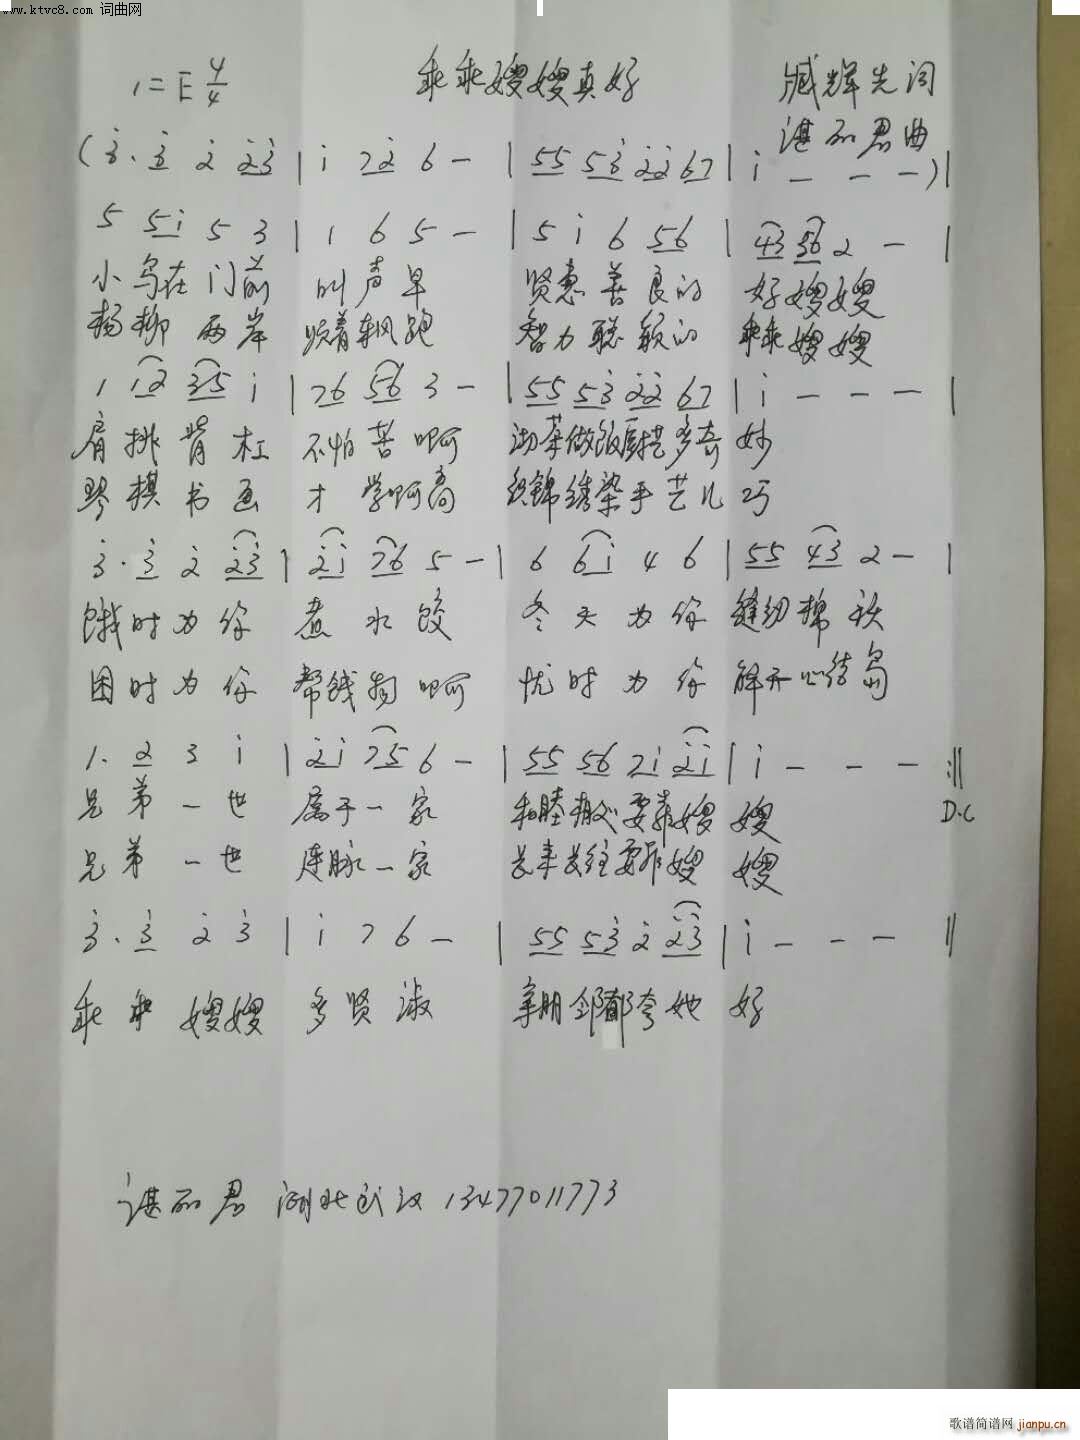 www.ktvc8.com 词曲网
1=E 4/4 乖乖嫂嫂真好 臧辉先词
谌丽君曲
(3̇. 3̇ 2̇ 2̇3̇ | i 72̇ 6 — | 55 53̇ 2̇2̇ 67 | i — — —)|
5 5i 5 3 | 1 6 5 — | 5 i 6 56 | 43 36 2 — |
小鸟在门前 叫声早 贤惠善良的 好嫂嫂
杨柳两岸 随着轻风跑 智力聪颖的 乖乖嫂嫂
1 12 35 i | 76 56 3 — | 55 53̇ 2̇2̇ 67 | i — — — |
肩挑背杠 不怕苦啊 做饭 多奇妙
琴棋书画 才学啊高 织锦绣染手艺儿巧
3̇. 3̇ 2̇ 2̇3̇ | 2̇i 76 5 — | 6 6i 4 6 | 55 43 2 — |
饿时为你 煮水饺 冬天为你 缝纫棉袄
困时为你 帮钱物啊 忧时为你 解开心结
1. 2 3 i | 2̇i 75 6 — | 55 56 7i 2̇i | i — — — :||
兄弟一世 属于一家 和睦 要靠嫂嫂 D.C
兄弟一世 连脉一家 长来长往要靠嫂嫂
3̇. 3̇ 2̇ 3̇ | i 7 6 — | 55 53̇ 2̇ 2̇3̇ | i — — — ||
乖乖嫂嫂 多贤淑 亲朋邻都夸她好
谌丽君 湖北武汉 13477011773
歌谱简谱网 jianpu.cn